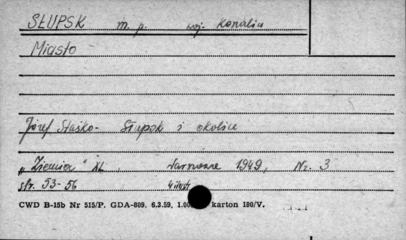 SŁUPSK m. p. woj. Koszalin
Miasto
Józef Staśko - Słupsk i okolice
"Ziemia" XL, Warszawa 1949, Nr. 3
str. 53-56 4 ilustr.
CWD B-15b Nr 515/P. GDA-809. 6.3.59, 1.00 karton 186/V.